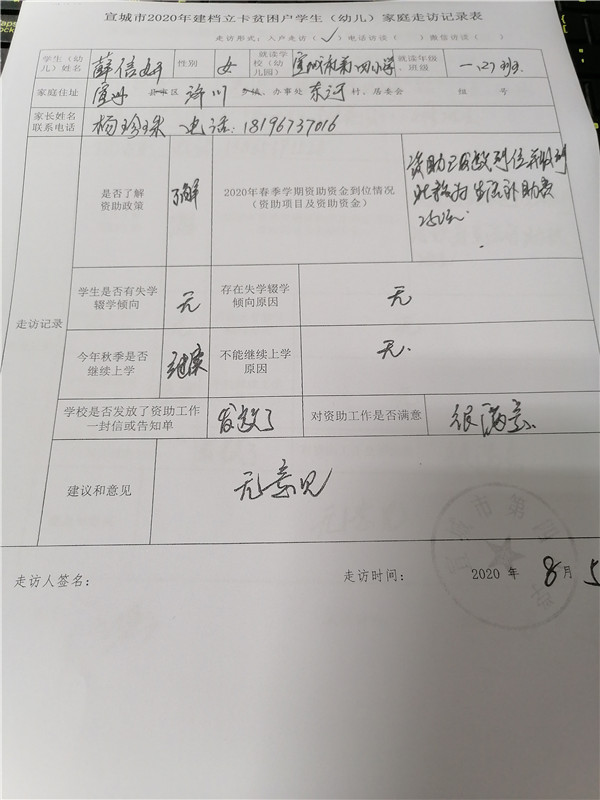 宣城市2020年建档立卡贫困户学生（幼儿）家庭走访记录表
走访形式：入户走访（✓）电话访谈（ ）微信访谈（ ）
学生（幼儿）姓名 薛信妤 性别 女 就读学校（幼儿园） 宣城市第四小学 就读年级、班级 一.(2)班
家庭住址 宣州 县市区 济川 乡镇、办事处 东河 村、居委会 组 号
家长姓名
联系电话 杨珍珠 电话：18196737016
走访记录
是否了解
资助政策 了解
2020年春季学期资助资金到位情况
（资助项目及资助资金）
资助已发放到位并收到
生活补助费
250元
学生是否有失学
辍学倾向 无
存在失学辍学
倾向原因 无
今年秋季是否
继续上学 继续
不能继续上学
原因 无.
学校是否发放了资助工作
一封信或告知单 发放了
对资助工作是否满意 很满意
建议和意见 无意见
走访人签名：
走访时间： 2020 年 8月 5